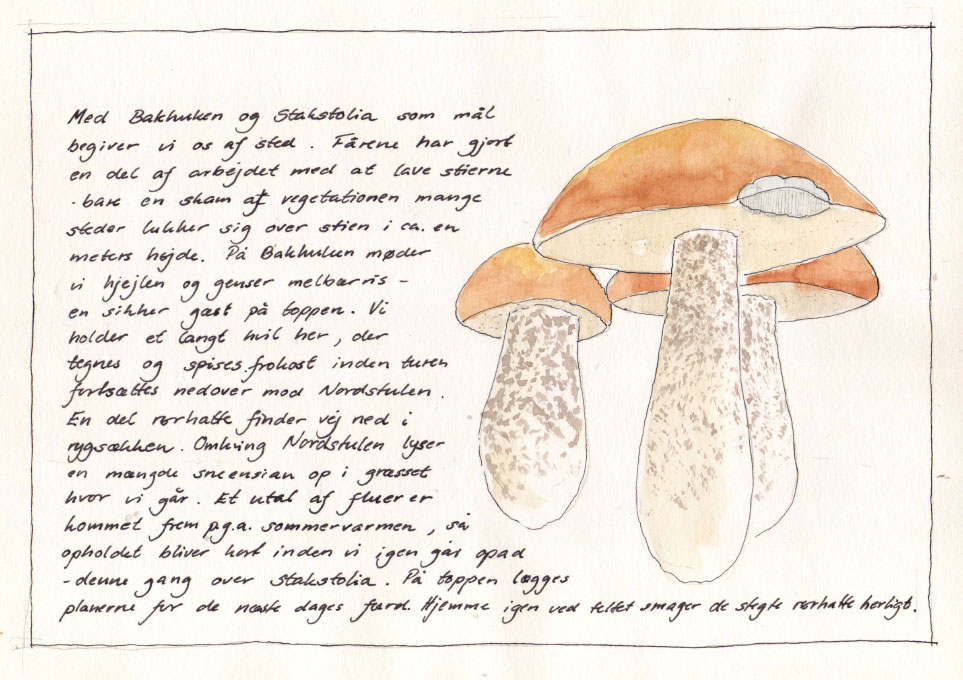 Med Bakhuken og Stakstolia som mål
begiver vi os af sted. Fårene har gjort
en del af arbejdet med at lave stierne
- bare en skam at vegetationen mange
steder lukker sig over stien i ca. en
meters højde. På Bakhuken møder
vi hjejlen og genser melbærris -
en sikker gæst på toppen. Vi
holder et langt hvil her, der
tegnes og spises frokost inden turen
fortsættes nedover mod Nordstulen.
En del rørhatte finder vej ned i
rygsækken. Omkring Nordstulen lyser
en mængde sneensian op i græsset
hvor vi går. Et utal af fluer er
kommet frem p.g.a. sommervarmen, så
opholdet bliver kort inden vi igen går opad
- denne gang over Stakstolia. På toppen lægges
planerne for de næste dages færd. Hjemme igen ved teltet smager de stegte rørhatte herligt.